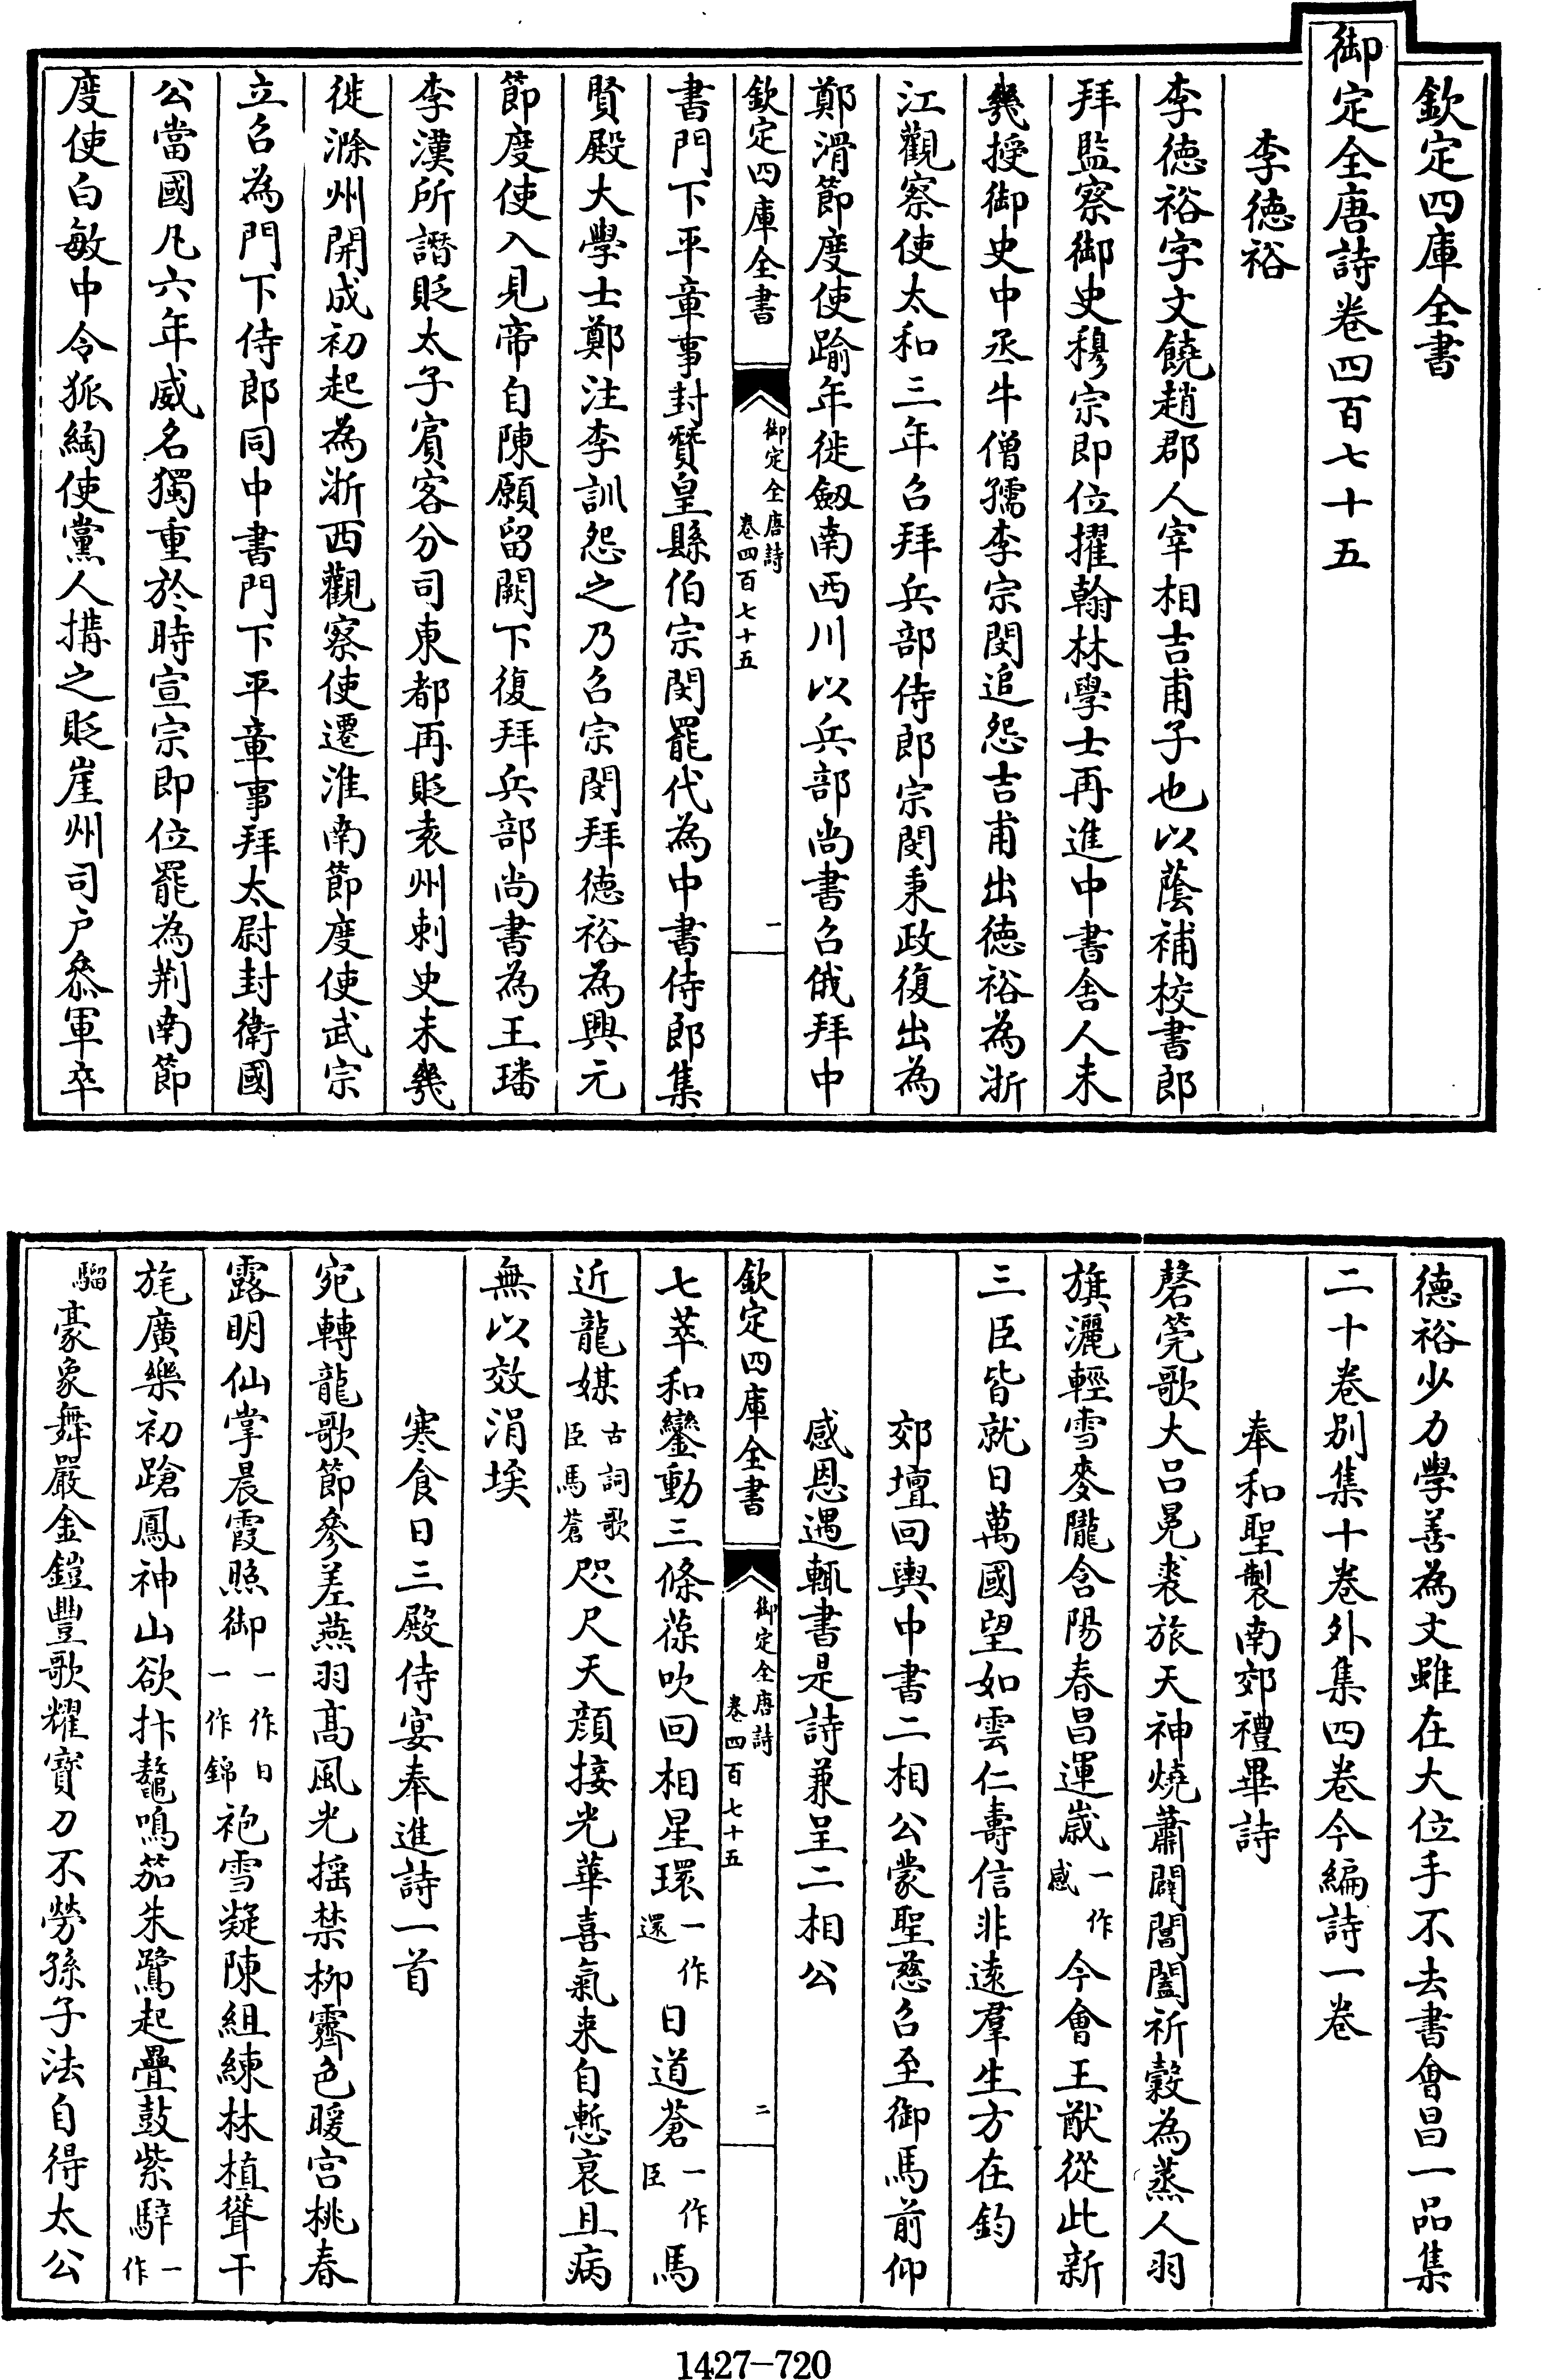 欽定四庫全書
御定全唐詩卷四百七十五
李德裕
李德裕字文饒趙郡人宰相吉甫子也以蔭補校書郎
拜監察御史穆宗即位擢翰林學士再進中書舍人未
幾授御史中丞牛僧孺李宗閔追怨吉甫出德裕為浙
江觀察使太和三年召拜兵部侍郎宗閔秉政復出為
鄭滑節度使踰年徙劔南西川以兵部尚書召俄拜中
欽定四庫全書
御定全唐詩
卷四百七十五
一
書門下平章事封贊皇縣伯宗閔罷代為中書侍郎集
賢殿大學士鄭注李訓怨之乃召宗閔拜德裕為興元
節度使入見帝自陳願留闕下復拜兵部尚書為王璠
李漢所譖貶太子賓客分司東都再貶袁州刺史未幾
徙滁州開成初起為浙西觀察使遷淮南節度使武宗
立召為門下侍郎同中書門下平章事拜太尉封衛國
公當國凡六年威名獨重於時宣宗即位罷為荆南節
度使白敏中令狐綯使黨人搆之貶崖州司户叅軍卒
德裕少力學善為文雖在大位手不去書會昌一品集
二十卷别集十卷外集四卷今編詩一卷
奉和聖製南郊禮畢詩
磬筦歌大吕冕裘旅天神燒蕭闢閶闔祈穀為蒸人羽
旗灑輕雪麥隴含陽春昌運歲一作感今會王猷從此新
三臣皆就日萬國望如雲仁壽信非遠羣生方在鈞
郊壇回輿中書二相公蒙聖慈召至御馬前仰
感恩遇輒書是詩兼呈二相公
欽定四庫全書
御定全唐詩
卷四百七十五
二
七萃和鑾動三條葆吹回相星環一作還日道蒼一作臣馬
近龍媒古詞歌臣馬蒼咫尺天顔接光華喜氣来自慙衰且病
無以效涓埃
寒食日三殿侍宴奉進詩一首
宛轉龍歌節參差燕羽高風光揺禁柳霽色暖宫桃春
露明仙掌晨霞照御一作日一作錦袍雪凝陳組練林植聳干
旄廣樂初蹌鳳神山欲抃鼇鳴笳朱鷺起疊鼓紫騂一作
騮豪象舞嚴金鎧豐歌耀寳刀不勞孫子法自得太公
1427-720